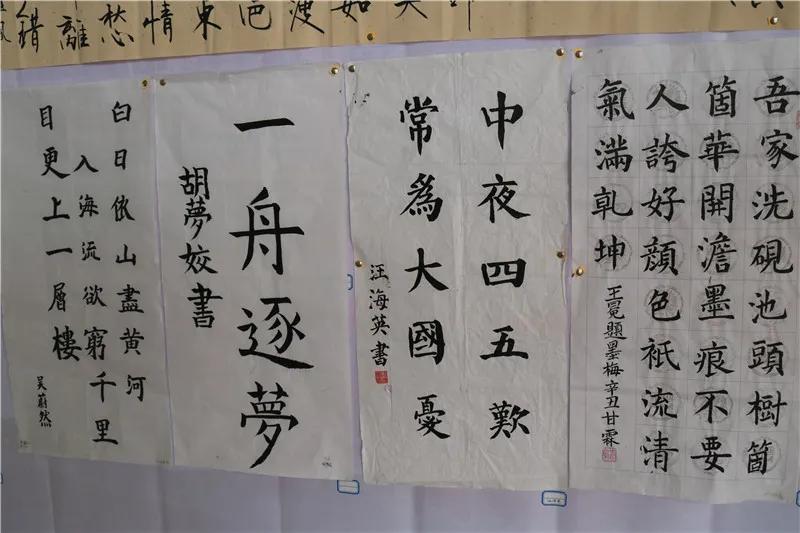 如
渡
東
情
愁
離
錯
吾家洗硯池頭樹箇
箇華開澹墨痕不要
人誇好顏色祇流清
氣滿乾坤
王冕題墨梅辛丑甘霖
中夜四五歎
常爲大國憂
汪海英書
一舟逐夢
胡夢姣書
白日依山盡黄河
入海流欲窮千里
目更上一層樓
吴蔚然